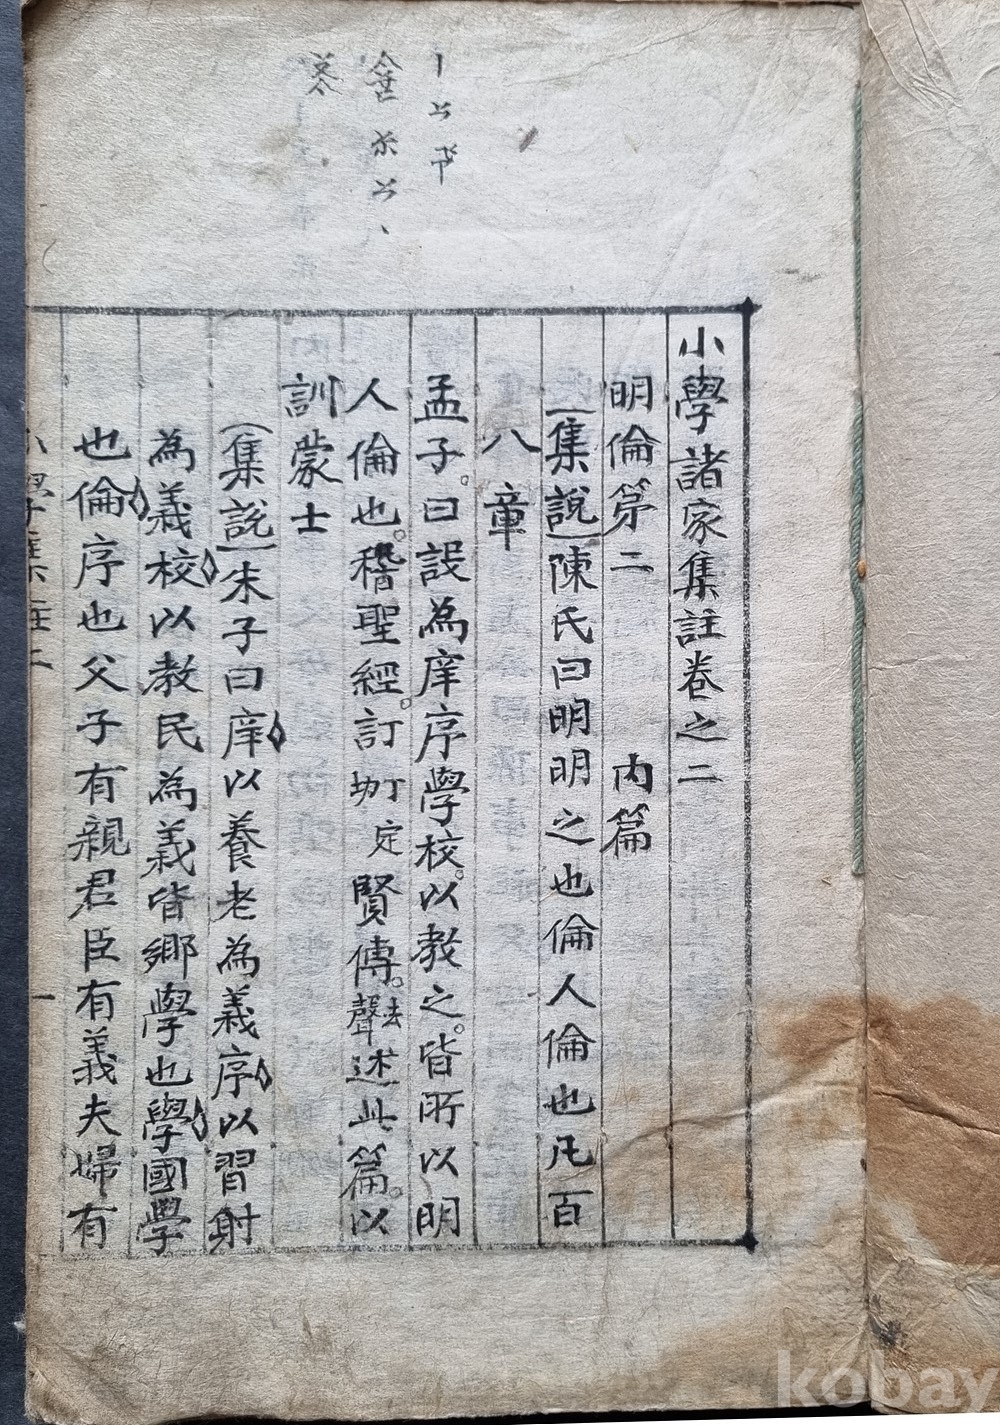 小學諸家集註卷之二
明倫第二 內篇
集說陳氏曰明明之也倫人倫也凡百
八章
孟子曰設為庠序學校以敎之皆所以明
人倫也稽聖經訂 定 賢傳去聲述此篇以
訓蒙士
集說朱子曰庠以養老為義序以習射
為義校以敎民為義皆鄉學也學國學
也倫序也父子有親君臣有義夫婦有
小學集註二 一
kobay